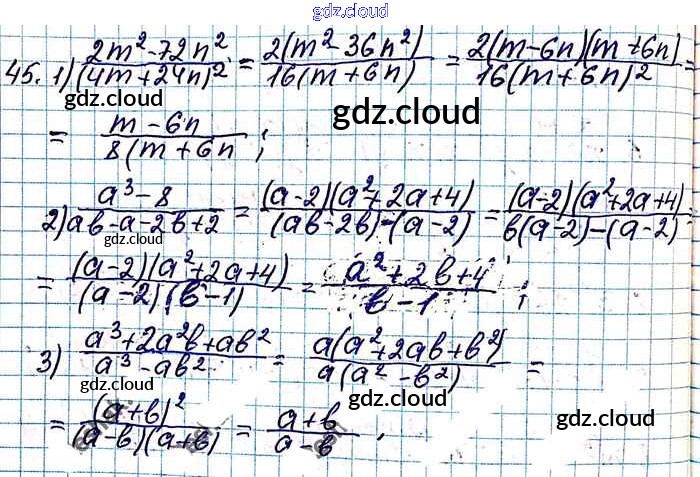 gdz.cloud
gdz.cloud
45. 1) (2m² - 72n²)/(4m + 24n)² = 2(m² - 36n²)/16(m + 6n) = 2(m - 6n)(m + 6n)/16(m + 6n)² =
gdz.cloud
gdz.cloud
= (m - 6n)/8(m + 6n ;
2) (a³ - 8)/(ab - a - 2b + 2) = (a - 2)(a² + 2a + 4)/(ab - 2b) - (a - 2) = (a - 2)(a² + 2a + 4)/b(a - 2) - (a - 2) =
gdz.cloud
gdz.cloud
= (a - 2)(a² + 2a + 4)/(a - 2)(b - 1) = (a² + 2b + 4)/(b - 1) ;
3) (a³ + 2a²b + ab²)/(a³ - ab²) = a(a² + 2ab + b²)/a(a² - b²) =
gdz.cloud
gdz.cloud
= (a + b)²/(a - b)(a + b) = (a + b)/(a - b) ,
gdz.cloud